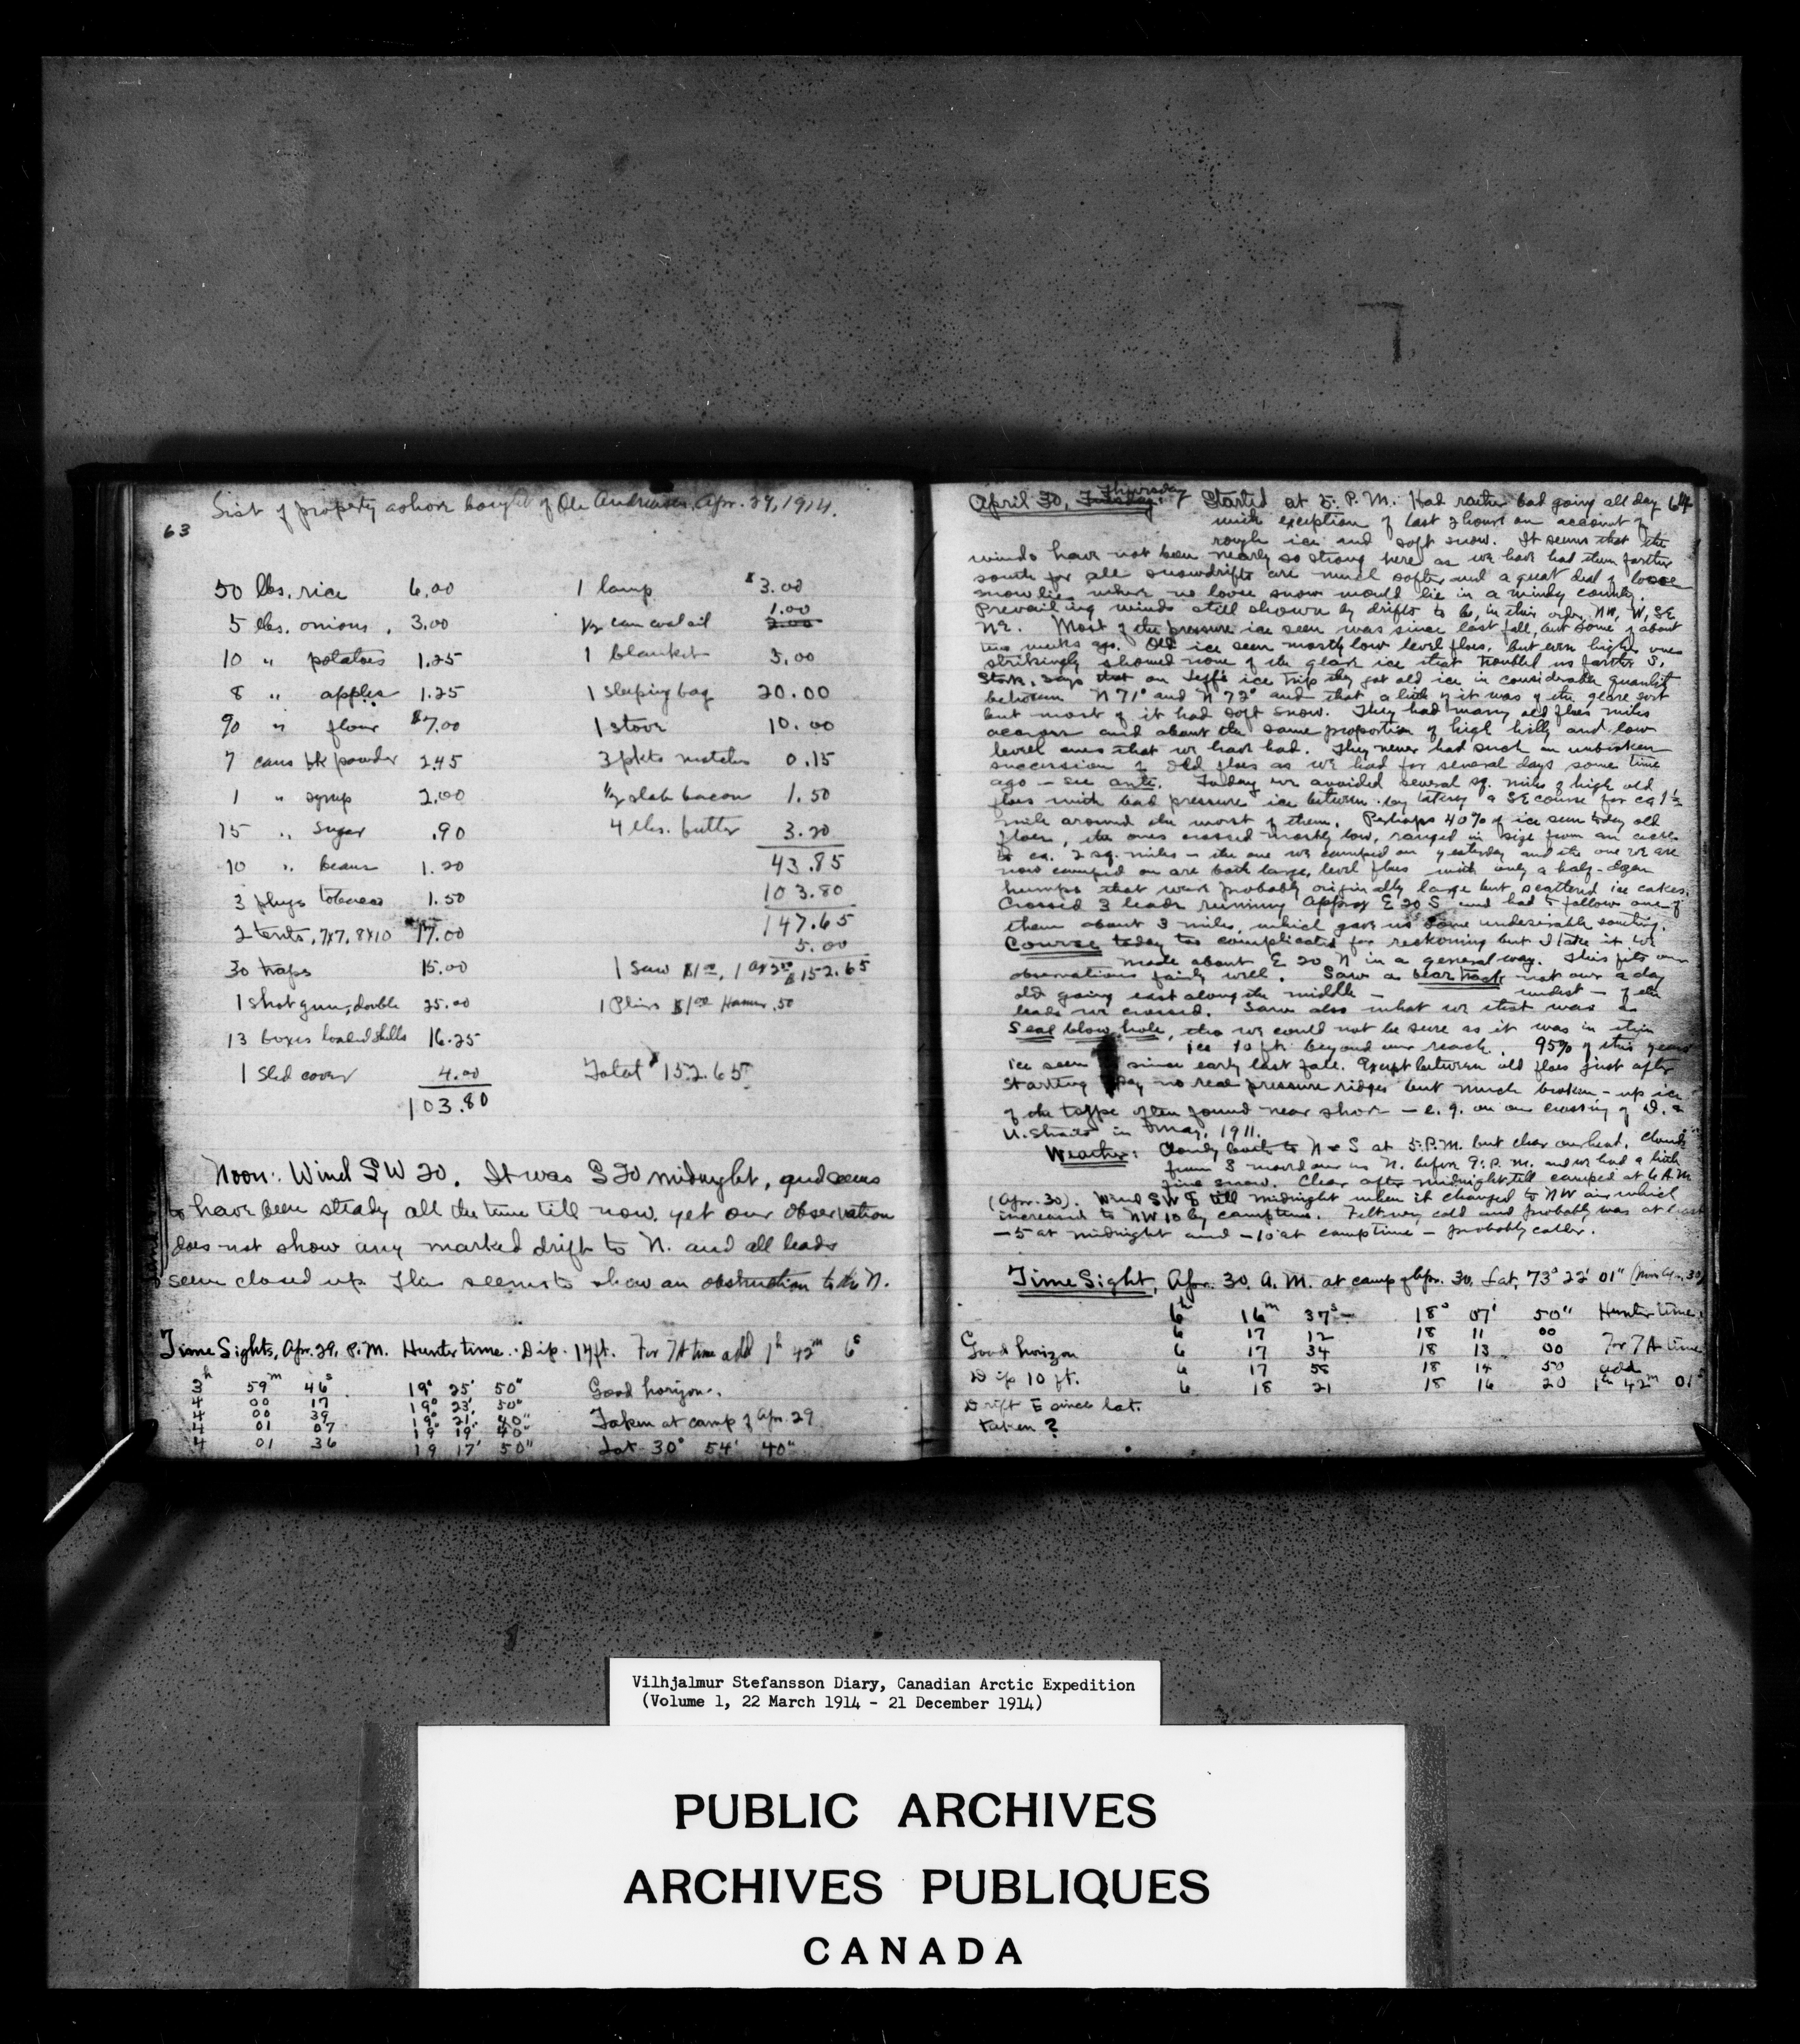 List of property ashore bought of Ole Andreasen Apr. 29, 1914.
63
50 lbs. rice 6.00
5 lbs. onions . 3.00
10 " potatoes 1.25
8 " apples 1.25
90 " flour $7.00
7 cans bk powder 2.45
1 " syrup 2.00
15 " sugar .90
10 " beans 1.20
3 plugs tobacco 1.50
2 tents, 7x7, 8x10 17.00
30 traps 15.00
1 shot gun, double 25.00
13 boxes loaded shells 16.25
1 sled cover 4.00
103.80
1 lamp $3.00
1.00
1/2 can coal oil 2.00
1 blanket 5.00
1 sleeping bag 20.00
1 stove 10.00
3 pkts matches 0.15
1/2 slab bacon 1.50
4 lbs. butter 3.20
43.85
103.80
147.65
5.00
1 Saw $1.00, 1 ax 2.50 $152.65
1 Pliers $1.00 Hammer .50
Total $152.65
Noon: Wind SW 20. It was S 20 midnight, and seems
to have been steady all the time till now, yet our observation
does not show any marked drift to N. and all leads
seem closed up. This seems to show an obstruction to the N.
Time Sights, Apr. 29, P.M. Hunter time. Dip. 14 ft. For 7A time add 1h 42m 6s
3h 59m 46s 19° 25' 50" Good horizon.
4 00 17 19° 23' 50"
4 00 39 19° 21' 40" Taken at camp of Apr. 29
4 01 07 19° 19' 40"
4 01 36 19 17' 50" Lat 30° 54' 40"
April 30, Tuesday. Thursday 7 Started at 5: P.M. Had rather bad going all day 64
with exception of last 2 hours on account of
rough ice and soft snow. It seems that the
winds have not been nearly so strong here as we have had them farther
south for all snowdrifts are much softer and a great deal of loose
snow lies where no loose snow would lie in a windy country.
Prevailing winds still shown by drifts to be, in this order, NW, W, SE
NE. Most of the pressure ice seen was since last fall, but some of about
two weeks ago. Old ice seen mostly low level floes, but even higher ones
strikingly showed none of the glare ice that troubled us farther S.
Stork. says that on Leff's ice trip they got old ice in considerable quantity
between N 71° and N 72° and that a little of it was of the glare sort
but most of it had soft snow. They had many old floes miles
across and about the same proportion of high hilly and low
level ones that we have had. They never had such an unbroken
succession of old floes as we had for several days some time
ago — see ante. Today we avoided several sq. miles of high old
floes with bad pressure ice between by taking a SE course for ca 1 1/2
mile around the worst of them. Perhaps 40% of ice seen today old
floes, the ones crossed mostly low, ranged in size from an acre
to ca. 2 sq. miles — the one we camped on yesterday and the one we are
now camped on are both large, level floes with only a half-dozen
humps that were probably originally large but scattered ice cakes.
Crossed 3 leads running approx E 20 S and had to follow one of
them about 3 miles, which gave us some undesirable southing.
Course today too complicated for reckoning but I take it we
made about E 20 N in a general way. This fits our
observations fairly well. Saw a bear track not over a day
old going east along the middle — widest — of the
leads we crossed. Saw also what we thot was a
seal blow hole, tho we could not be sure as it was in thin
ice 10 ft. beyond our reach. 95% of this years
ice seen since early last fall. Except between old floes just after
starting today no real pressure ridges but much broken-up ice
of the type often found near shore — e.g. on our crossing of D. &
U. Straits in May, 1911.
Weather: Cloudy banks to N & S at 5: P.M. but clear overhead. Clouds
from S moved over us N. before 9: P.M. and we had a little
fine snow. Clear after midnight till camped at 6 A.M.
(Apr. 30). Wind SW 8 till midnight when it changed to NW air which
increased to NW 10 by camptime. Felt very cold and probably was at least
—5 at midnight and —10 at camptime — probably colder.
Time Sight, Apr. 30 A.M. at camp of Apr. 30, Lat. 73° 22' 01" (Noon Apr. 30)
6h 16m 37s 18° 07' 50" Hunter time.
6 17 12 18 11 00
Good horizon 6 17 34 18 13 00 For 7A time
Dip 10 ft. 6 17 58 18 14 50 add
6 18 21 18 16 20 1h 42m 01s
Drift E since lat.
taken?
Vilhjalmur Stefansson Diary, Canadian Arctic Expedition
(Volume 1, 22 March 1914 - 21 December 1914)
PUBLIC ARCHIVES
ARCHIVES PUBLIQUES
CANADA